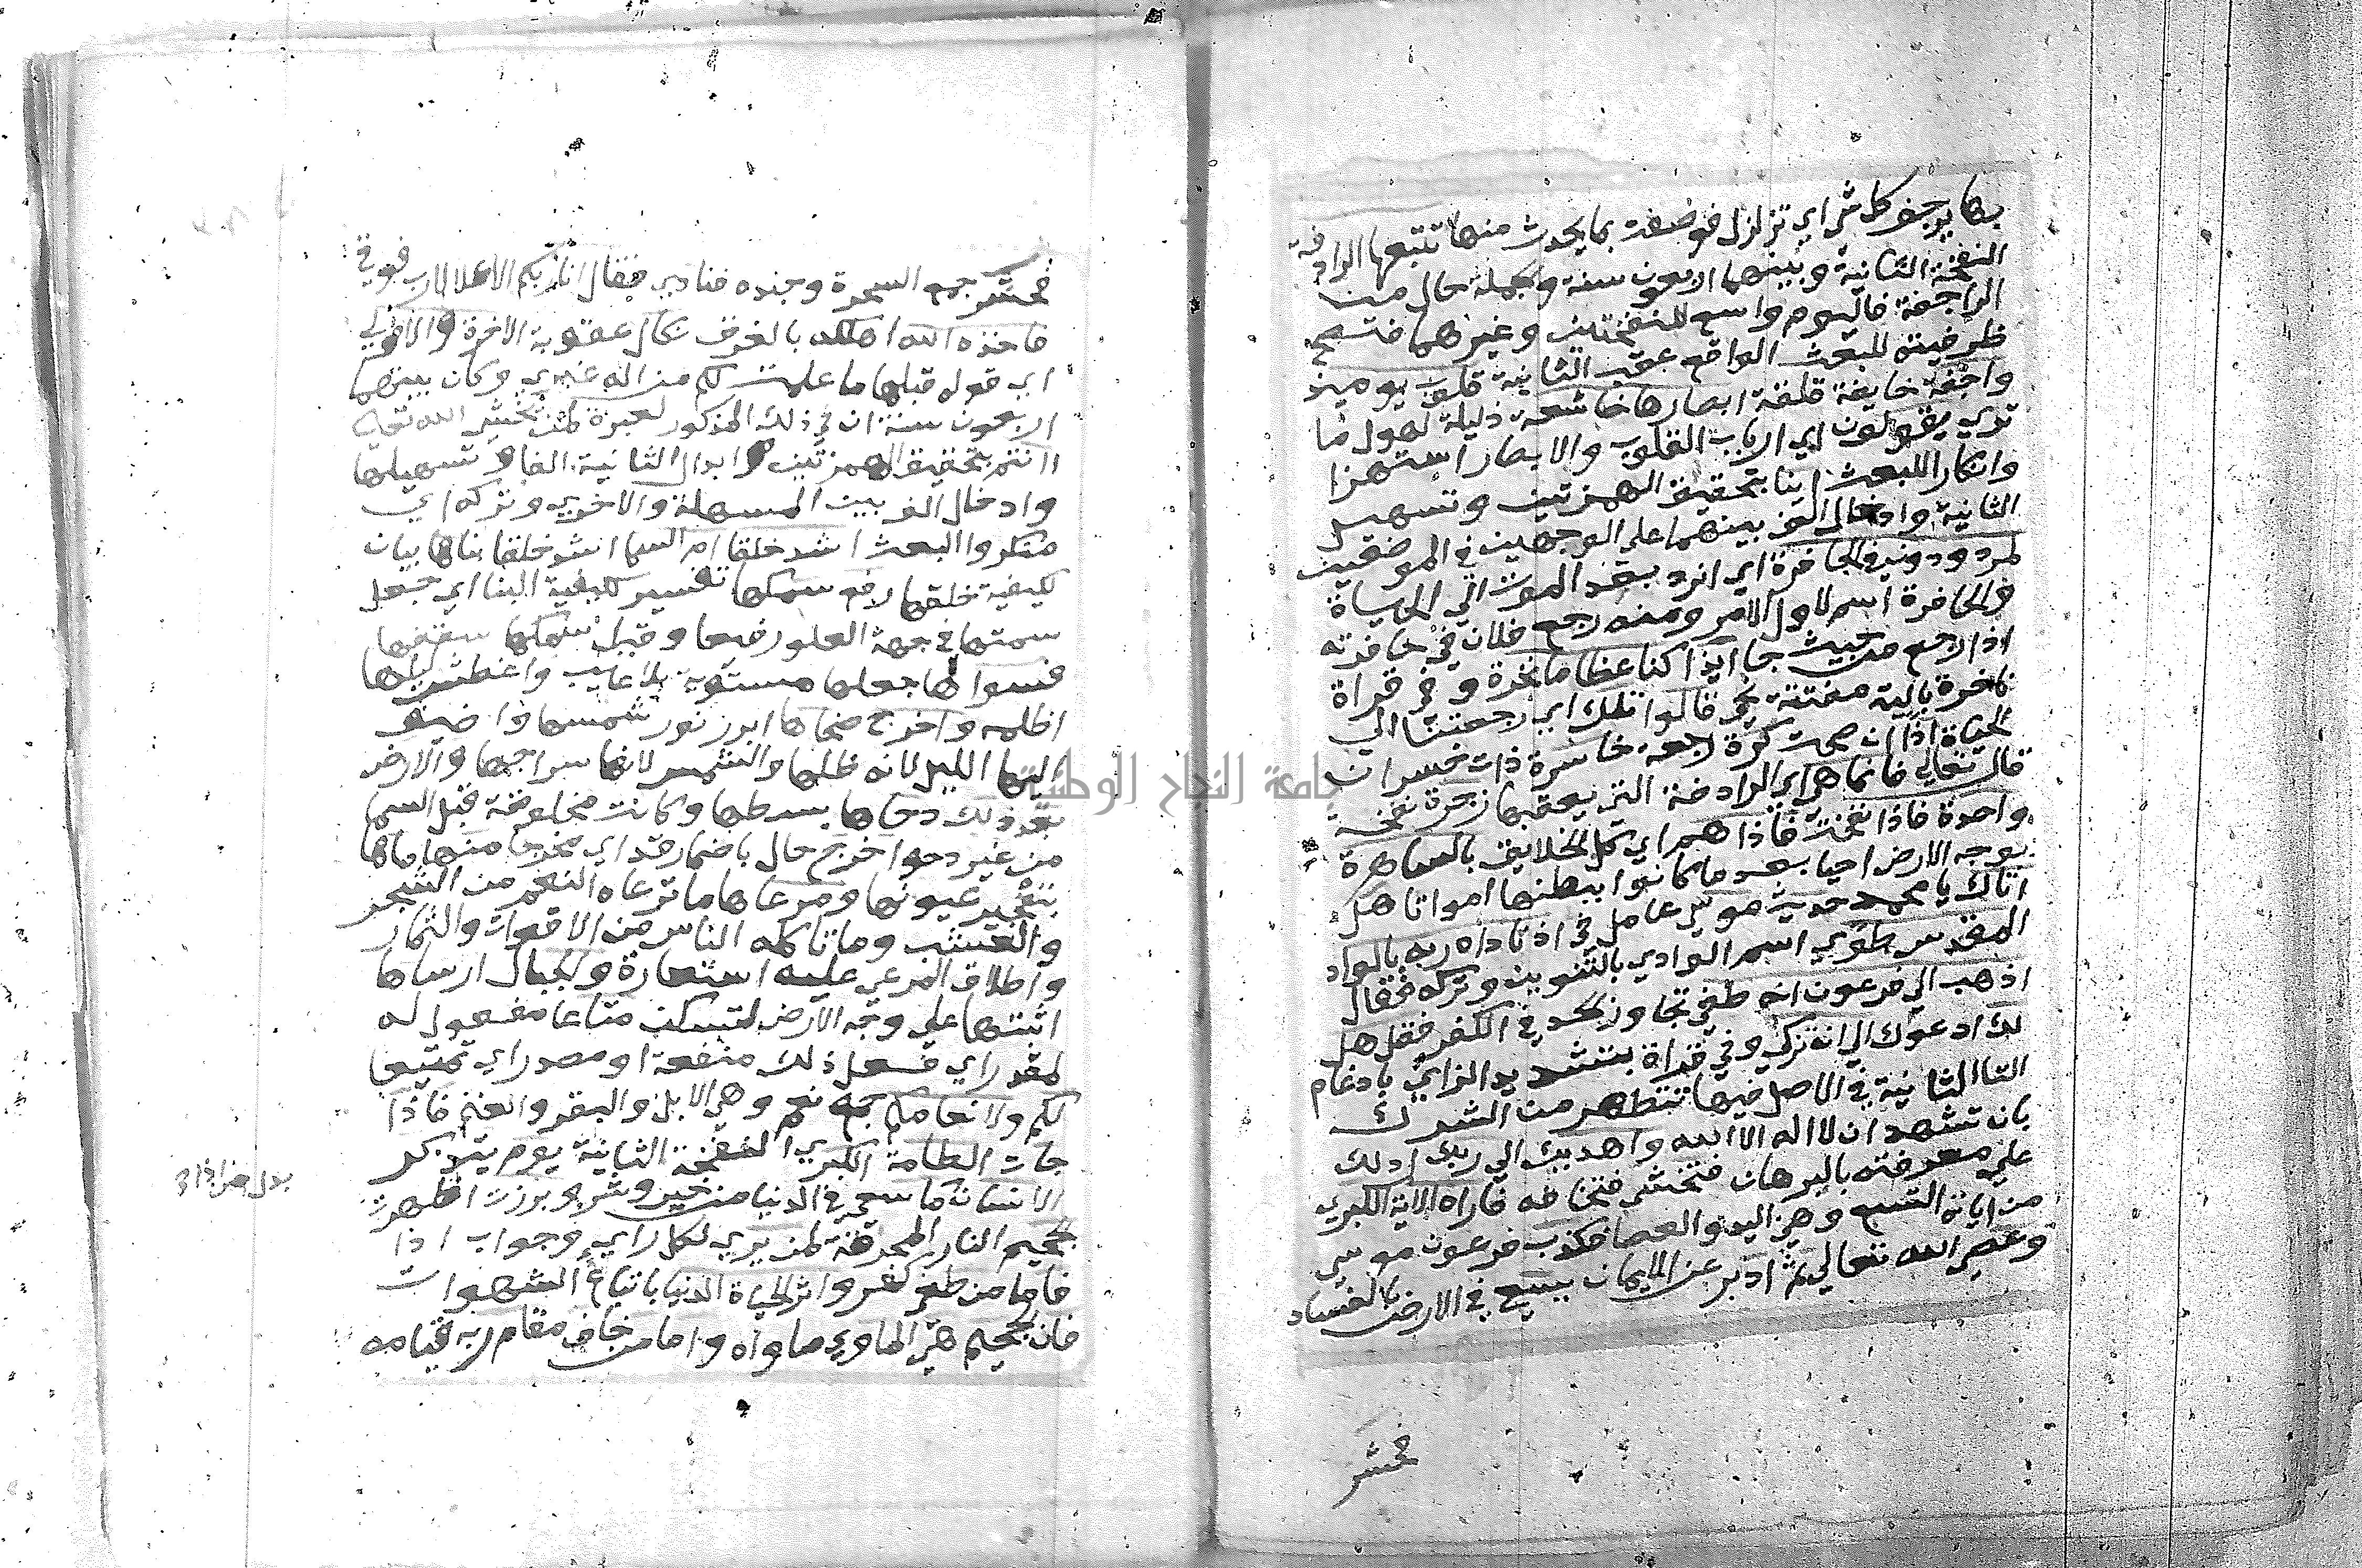 بها يرجف كل شي اي تزلزل فوصفت بما يحدث منها تتبعها الرادفة
النفخة الثانية وبينهما اربعون سنة والجملة حال من
الراجفة فاليوم واسع للنفختين وغيرهما فتصح
ظرفيته للبعث الواقع عقب الثانية قلوب يوميذ
واجفة خايفة قلقة ابصارها خاشعة ذليلة لهول ما
تري يقولون اي ارباب القلوب والابصار استهزا
وانكارا للبعث اينا بتحقيق الهمزتين وتسهيل
الثانية وادخال الف بينهما علي الوجهين في الموضعين
لمردودون في الحافرة اي انرد بعد الموت الي الحياة
والحافرة اسم لاول الامر ومنه رجع فلان في حافرته
اذا رجع من حيث جا ايذا كنا عظاما نخرة وفي قراة
ناخرة بالية متفتتة نحي قالوا تلك اي رجعتنا الي
الحياة اذا ان صحت كرة رجعة خاسرة ذات خسران
قال تعالي فانما هي اي الرادفة التي يعقبها زجرة نفخة
واحدة فاذا نفخت فاذا هم اي كل الخلايق بالساهرة
بوجه الارض احيا بعد ما كانوا ببطنها امواتا هل
اتاك يا محمد حديث موسي عامل في اذ ناداه ربه بالواد
المقدس طوي اسم الوادي بالتنوين وتركه فقال
اذهب الي فرعون انه طغي تجاوز الحد في الكفر فقل هل
لك ادعوك الي ان تزكي وفي قراة بتشديد الزاي بادغام
التا الثانية في الاصل فيها تتطهر من الشرك
بان تشهد ان لا اله الا الله واهديك الي ربك ادلك
علي معرفته بالبرهان فتخشي فتخافه فاراه الاية الكبري
من اياته التسع وهي اليد والعصا فكذب فرعون موسي
وعصي الله تعالي ثم ادبر عن الايمان يسعي في الارض بالفساد
فحشر
فحشر جمع السحرة وجنده فنادي فقال انا ربكم الاعلا لا رب فوقي
فاخذه الله اهلكه بالغرق نكال عقوبة الاخرة والاولي
اي قوله قبلها ما علمت لكم من اله غيري وكان بينهما
اربعون سنة ان في ذلك المذكور لعبرة لمن يخشي الله تعالي
اانتم بتحقيق الهمزتين وابدال الثانية الفا وتسهيلها
وادخال الف بين المسهلة والاخري وتركه اي
منكروا البعث اشد خلقا ام السما اشد خلقا بناها بيان
لكيفية خلقها رفع سمكها تفسير لكيفية البنا اي جعل
سمتها في جهة العلو رفيعا وقيل سمكها سقفها
فسواها جعلها مستوية بلا عيب واغطش ليلها
اظلمه واخرج ضحاها ابرز نور شمسها واضيف
اليها الليل لانه ظلها والشمس لانها سراجها والارض
بعد ذلك دحاها بسطها وكانت مخلوقة قبل السما
من غير دحو اخرج حال باضمار قد اي مخرجا منها ماها
بتفجير عيونها ومرعاها ما ترعاه النعم من الشجر
والعشب وما تاكله الناس من الاقوات والثمار
واطلاق المرعي عليه استعارة والجبال ارساها
اثبتها علي وجه الارض لتسكن متاعا مفعول له
لمقدر اي فعل ذلك منفعة او مصدر اي تمتيعا
لكم ولانعامكم جمع نعم وهي الابل والبقر والغنم فاذا
جات الطامة الكبري النفخة الثانية يوم يتذكر
بدل من اذا
الانسان ما سعي في الدنيا من خير وشر وبرزت اظهرت
الجحيم النار المحرقة لمن يري لكل راي وجواب اذا
فاما من طغي كفر واثر الحياة الدنيا باتباع الشهوات
فان الجحيم هي الماوي ماواه واما من خاف مقام ربه قيامه
جامعة النجاح الوطنية